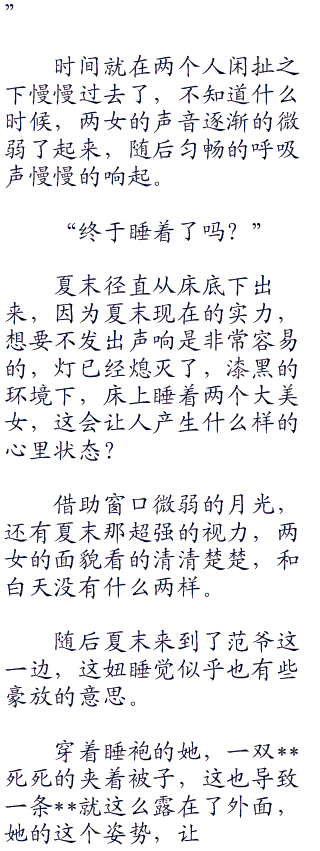 ”
时间就在两个人闲扯之
下慢慢过去了，不知道什么
时候，两女的声音逐渐的微
弱了起来，随后匀畅的呼吸
声慢慢的响起。
“终于睡着了吗？”
夏末径直从床底下出
来，因为夏末现在的实力，
想要不发出声响是非常容易
的，灯已经熄灭了，漆黑的
环境下，床上睡着两个大美
女，这会让人产生什么样的
心里状态？
借助窗口微弱的月光，
还有夏末那超强的视力，两
女的面貌看的清清楚楚，和
白天没有什么两样。
随后夏末来到了范爷这
一边，这妞睡觉似乎也有些
豪放的意思。
穿着睡袍的她，一双**
死死的夹着被子，这也导致
一条**就这么露在了外面，
她的这个姿势，让